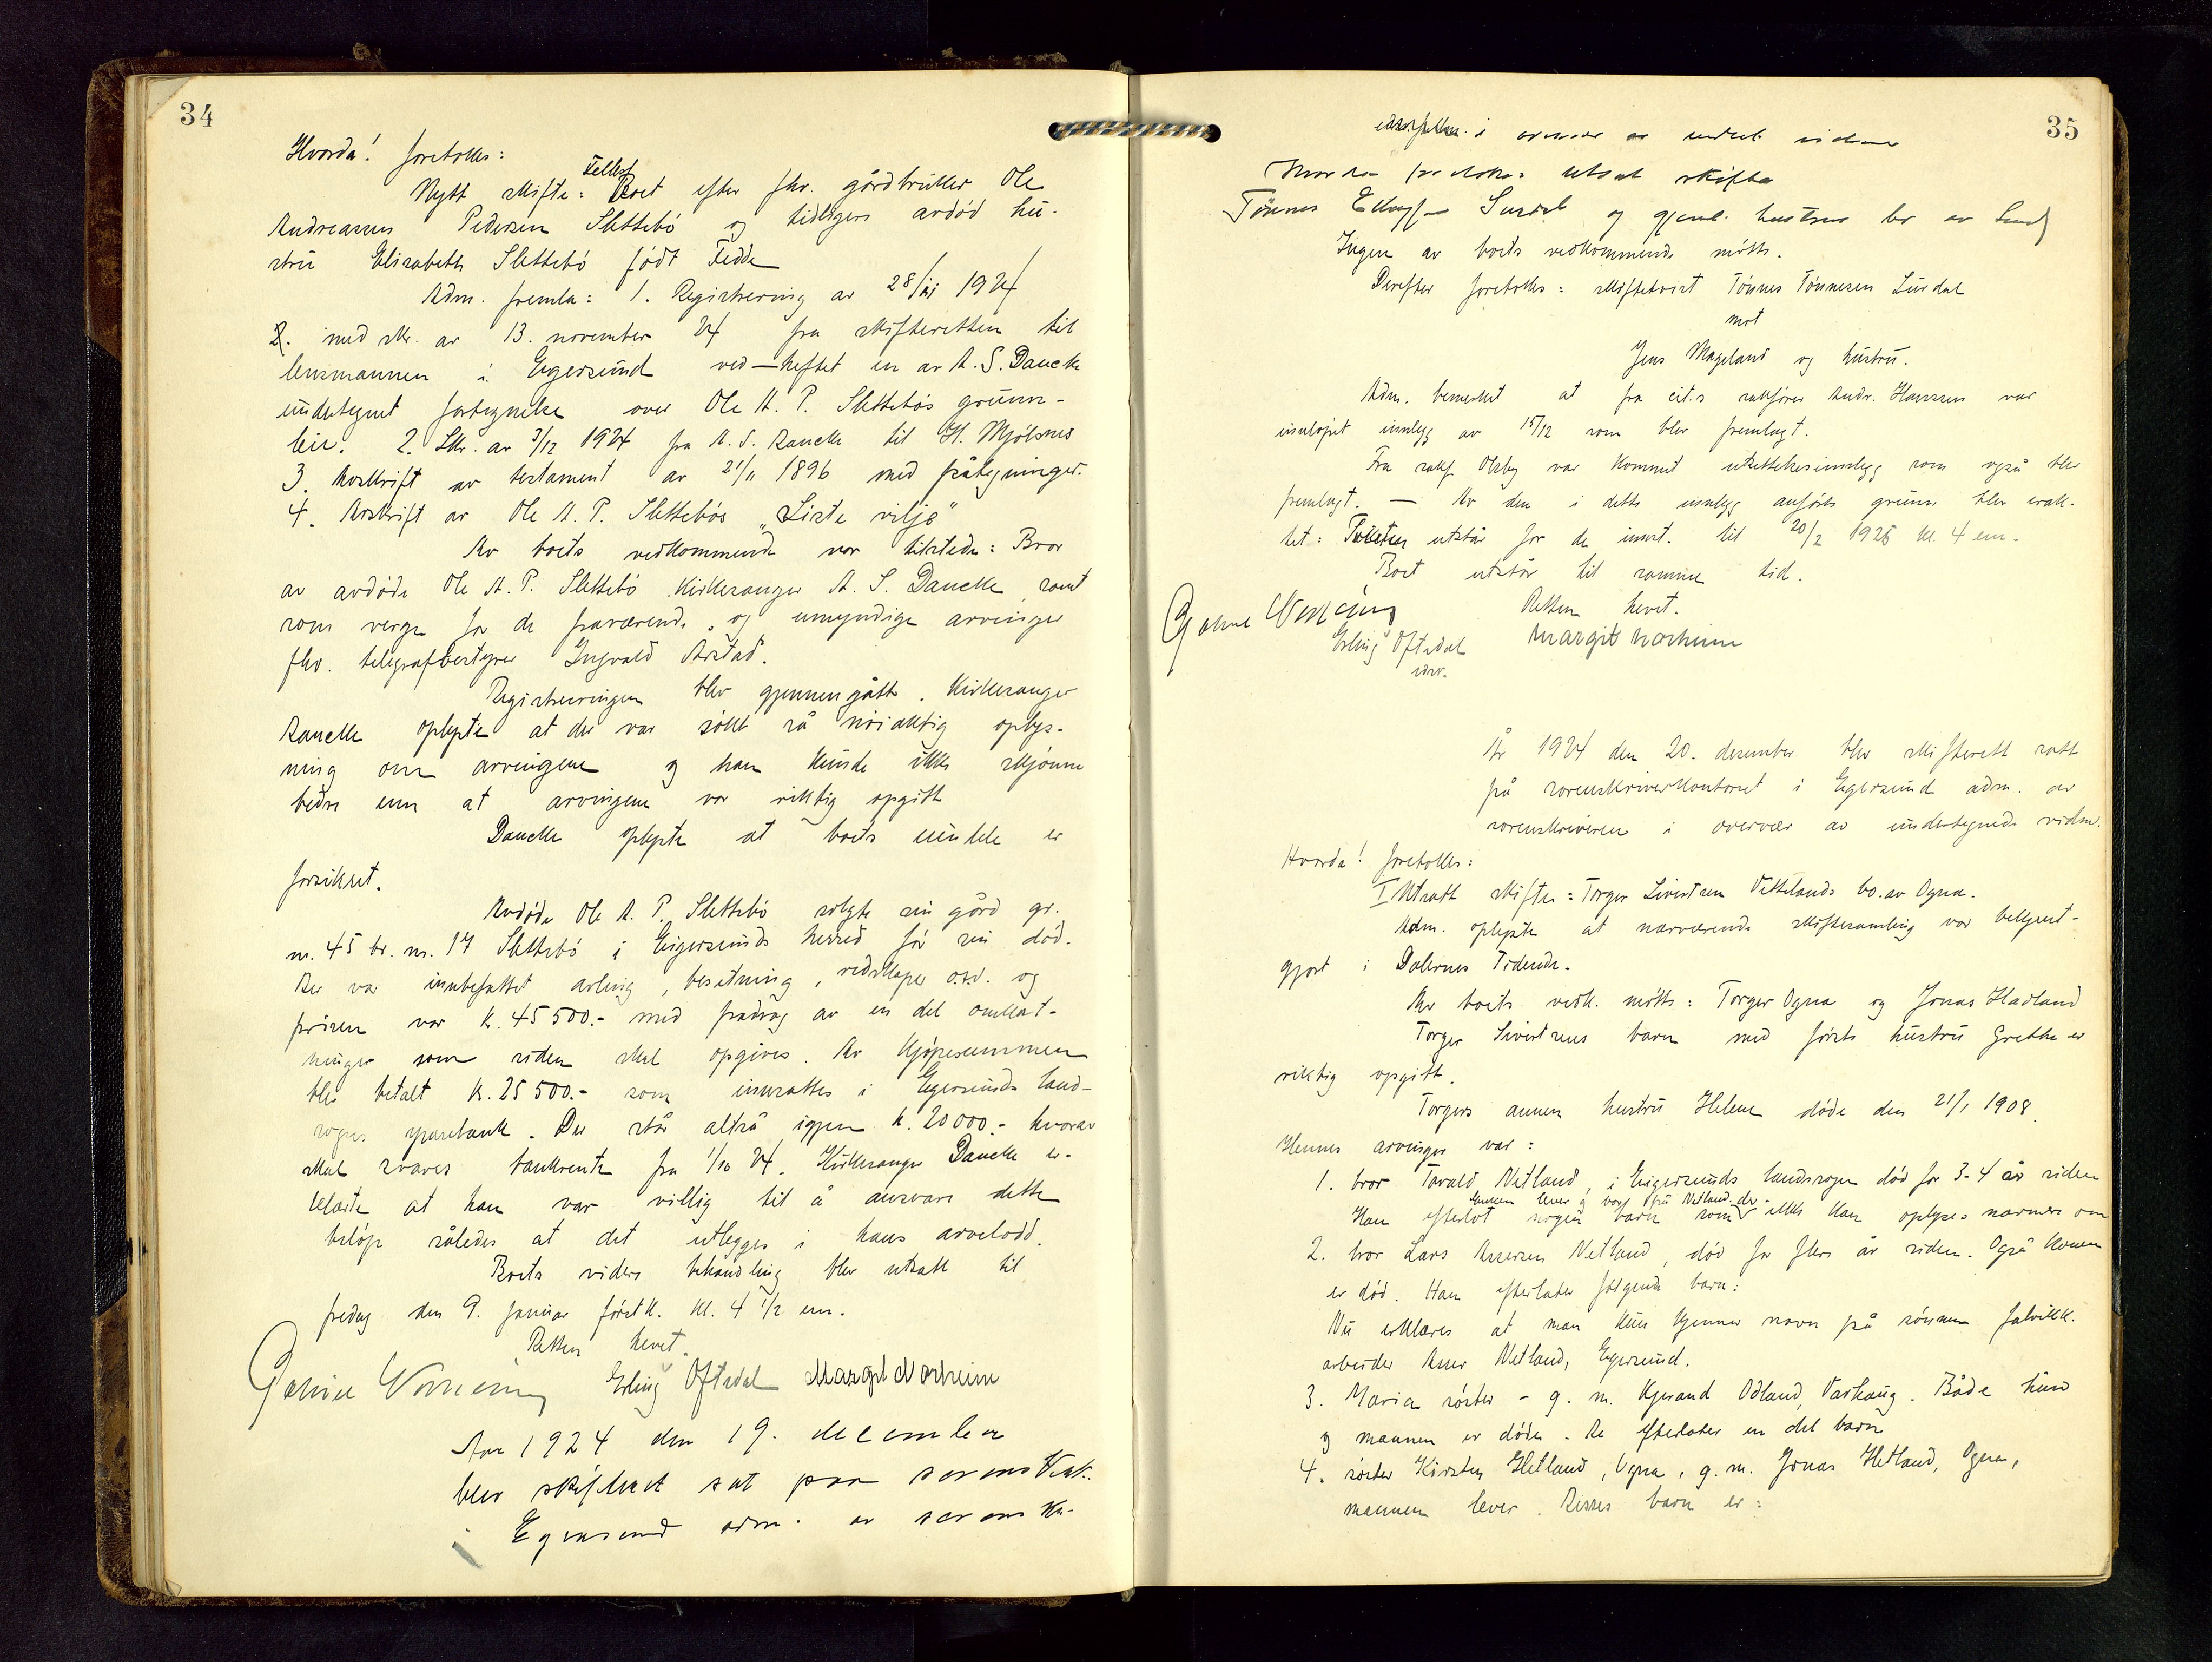 34
Hvorda! foretokes:
Nytt skifte: Fellesboet efter fhv. gårdbruker Ole
Andreassen Pedersen Slettebö og tidligere avdöd hu-
stru Elisabeth Slettebö född Fedde
Adm. fremla: 1. Registrering av 28/11 1924
2. med skr. av 13. november 24 fra skifteretten til
lensmannen i Egersund ved-heftet en av A. S. Dancke
undertegnet fortegnelse over Ole A. P. Slettebös
2. Skr. av 3/12 1924 fra A. S. Dancke til H. Mjölsnes
3. Avskrift av testament av 21/11 1896 med påtegninger.
4. Avskrift av Ole A. P. Slettebös "Siste vilje"
Av boets vedkommende var tilstede: Bror
av avdöde Ole A. P. Slettebö Kirkesanger A. S. Dancke, samt
som verge for de fraværende og umyndige arvinger
fhv. telegrafbestyrer Ingvald Årstad.
Registreringen blev gjennemgått. Kirkesanger
Dancke oplyste at der var sökt så nöiaktig oplys-
ning om arvingene og han kunde ikke skjönne
bedre enn at arvingene var riktig opgitt
Dancke oplyste at boets er
forsikret.
Avdöde Ole A. P. Slettebö solgte sin gård gr.
nr. 45 br. nr. 17 Slettebö i Eigersunds herred för sin död.
Der var innbefattet avling, besetning, redskaper o.s.v. og
prisen var kr. 45 500.- med fradrag av en del omkost-
ninger som siden skal opgives. Av kjöpesummen
blev betalt kr. 25 500.- som innsattes i Egersunds land-
sogns sparebank. Der står altså igjen kr. 20 000.- hvorav
skal svares bankrente fra 1/10 24. Kirkesanger Dancke er-
klærte at han var villig til å ansvare dette
belöp således at det utlegges i hans arvelodd.
Boets videre behandling blev utsatt til
fredag den 9. januar förstk. kl. 4 1/2 em.
Retten hevet.
Erling Oftedal Margit Norheim
Aar 1924 den 19. december
blev skifteret sat paa sorenskr.k.
i Egersund adm. av sorenskr.
35
i overvær av undert. vidner
Hvorda foretokes utsat skifte
Tönnes Surdal og gjenl. hustrus bo av Lund
Ingen av boets vedkommende mötte.
Derefter foretokes: skiftetvist Tönnes Tönnesen Surdal
mot
Jens Mageland og hustru.
Adm. bemerket at fra cit.s sakförer Andr. Hanssen var
innlöpet innlegg av 15/12 som blev fremlagt.
Fra sakf. Olsby var kommet utsettelsesinnlegg som også blev
fremlagt. — Av den i dette innlegg anförte grunn blev erak-
tet: Tvisten utstår for de innst. til 20/2 1925 kl. 4 em.
Boet utstår til samme tid.
Retten hevet.
Erling Oftedal Margit Norheim
År 1924 den 20. desember blev skifterett satt
på sorenskriverkontoret i Egersund adm. av
sorenskriveren i overvær av undertegnede vidner.
Hvorda! foretokes:
I Utsatt skifte: Torger Sivertsen Vettelands bo av Ogna.
Adm. oplyste at nærværende skiftesamling var bekjent-
gjort i Dalernes Tidende.
Av boets vedk. mötte: Torger Ogna og Jonas Hadland
Torger Sivertsens barn med förste hustru Grethe er
riktig opgitt.
Torgers annen hustru Helene döde den 21/1 1908.
Hennes arvinger var:
1. bror Tarald Netland, i Eigersunds landsogn död for 3-4 år siden
Enken lever og bor på Netland. der
Han efterlot nogen barn som ikke kan oplyses nærmere om
2. bror Lars Assersen Netland, död for flere år siden. Også konen
er död. Han efterlater fölgende barn:
Nu erklæres at man kun kjenner navn på sönnen fabrikk.
arbeider Asser Netland, Egersund.
3. Maria söster - g. m. Gjerand Odland, Varhaug. Både hun
og mannen er döde. De efterlater en del barn
4. söster Kirsten Hetland, Ogna, g. m. Jonas Hetland, Ogna,
mannen lever. Disses barn er: